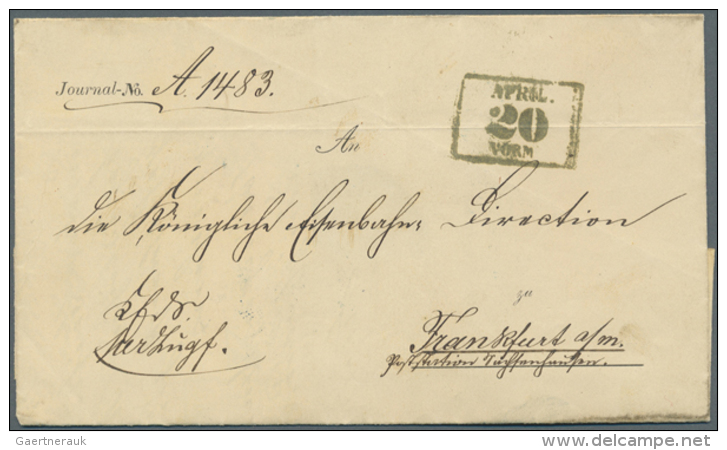 Journal-No. A. 1483.
APRIL.
20
VORM
An
die Königliche Eisenbahn- Direction
zu
Frankfurt a/m.
Poststation Sachsenhausen.
Gaertnerauk
www.delcampe.net